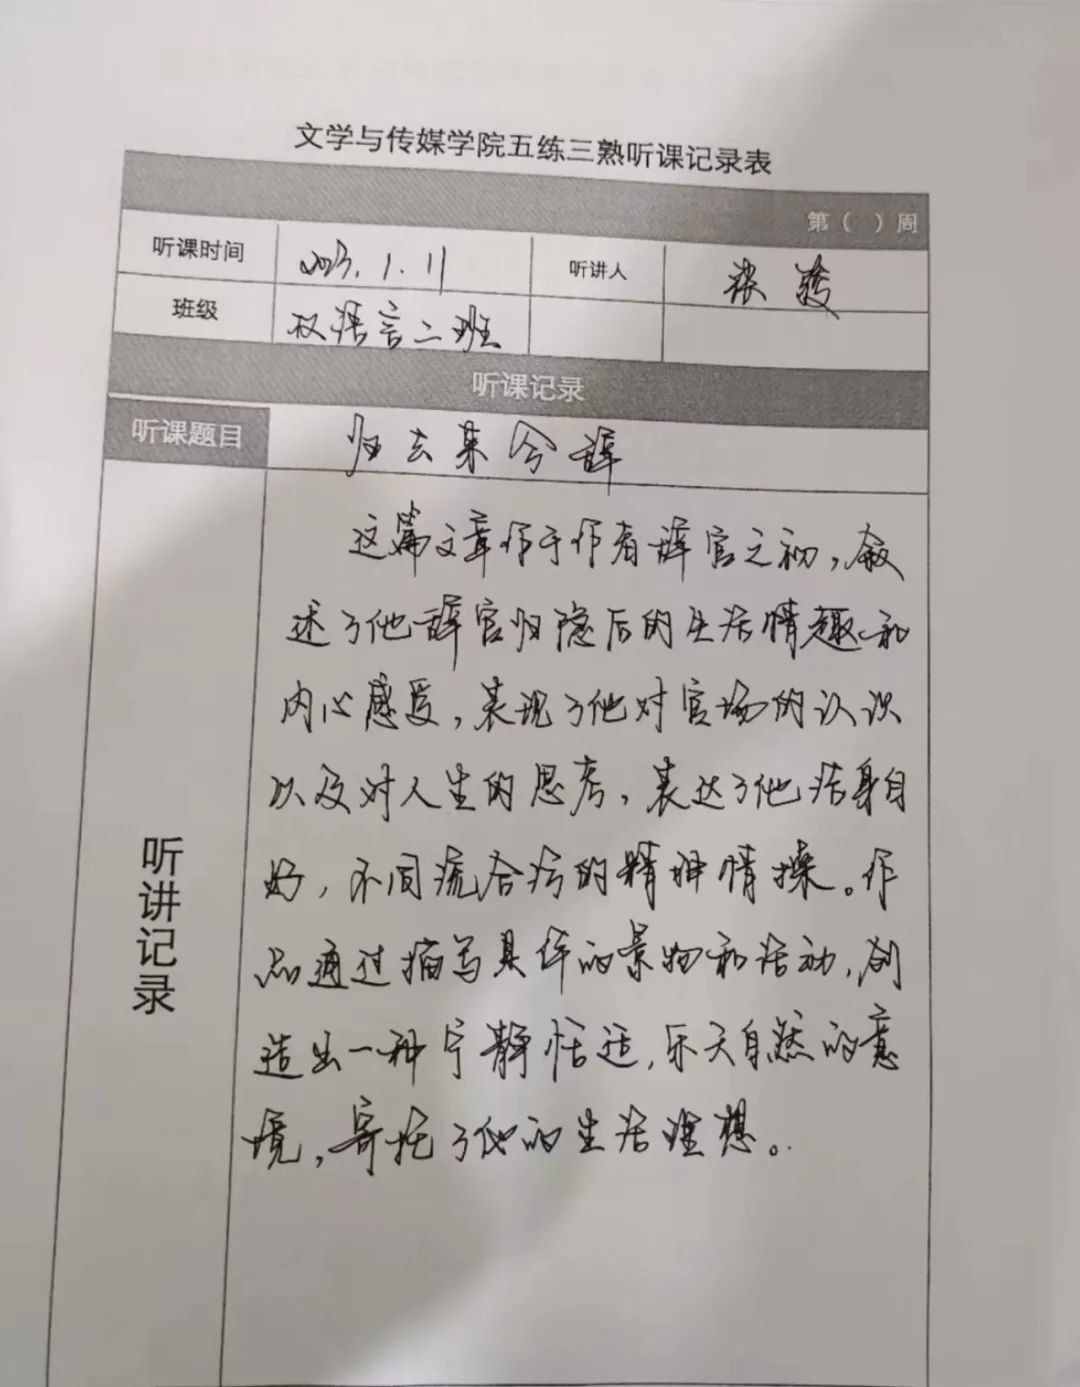 文学与传媒学院五练三熟听课记录表
第（ ）周
听课时间 2023.1.11 听讲人 张
班级 汉语言二班
听课记录
听课题目 归去来兮辞
听讲记录
这篇文章作于作者辞官之初，叙
述了他辞官归隐后的生活情趣和
内心感受，表现了他对官场的认识
以及对人生的思考，表达了他洁身自
好，不同流合污的精神情操。作
品通过描写具体的景物和活动，创
造出一种宁静恬适，乐天自然的意
境，寄托了他的生活理想。